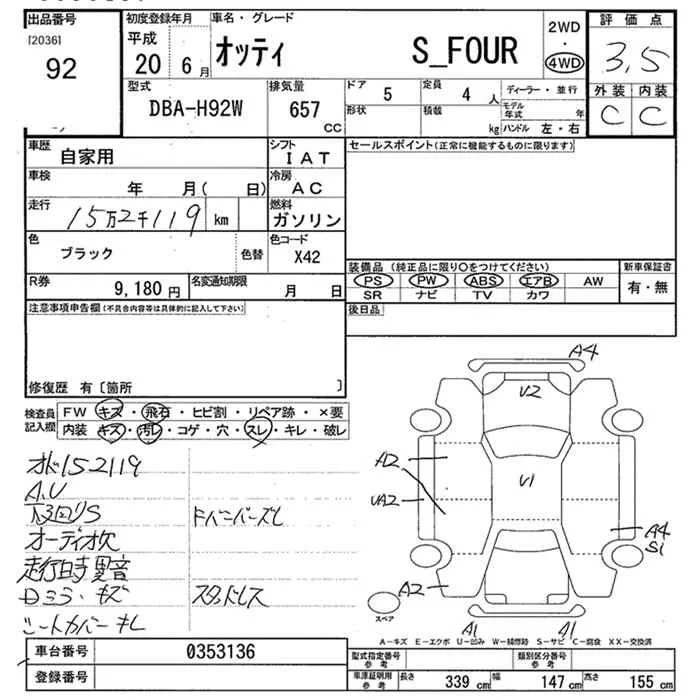 出品番号
[2036]
92
初度登録年月
平成
20 6月
車名・グレード
オッティ S_FOUR
2WD
・
4WD
評価点
3,5
外装 内装
C C
型式
DBA-H92W
排気量
657
CC
ドア
5
定員
4人
形状
積載
kg
ディーラー・並行
モデル
年式 年
ハンドル 左・右
車歴
自家用
シフト
IAT
車検
年 月( 日)
冷房
AC
走行
15万2千119 km
燃料
ガソリン
色
ブラック
色替
色コード
X42
R券
9,180円
名変通知期限
月 日
セールスポイント(正常に機能するものに限ります)
装備品 (純正品に限り○をつけてください)
PS PW ABS エアB AW
SR ナビ TV カワ
新車保証書
有・無
後日品
注意事項申告欄(不具合内容等は具体的に記入して下さい)
修復歴 有〔箇所 〕
検査員
記入欄
FW キズ・飛石・ヒビ割・リペア跡・×要
内装 キズ・汚レ・コゲ・穴・スレ・キレ・破レ
オド152119
A.U
下回りS
ドバーバーズレ
オーディオ欠
走行時異音
Dミラーキズ
スタッドレス
シートカバーキレ
A4
U2
A2
U1
UA2
A4
S1
A2
A1
A1
スペア
A-キズ E-エクボ U-凹み W-補修跡 S-サビ C-腐食 XX-交換済
車台番号
0353136
登録番号
型式指定番号
参考
類別区分番号
参考
車庫証明用
参考
長さ 339cm 幅 147cm 高さ 155cm